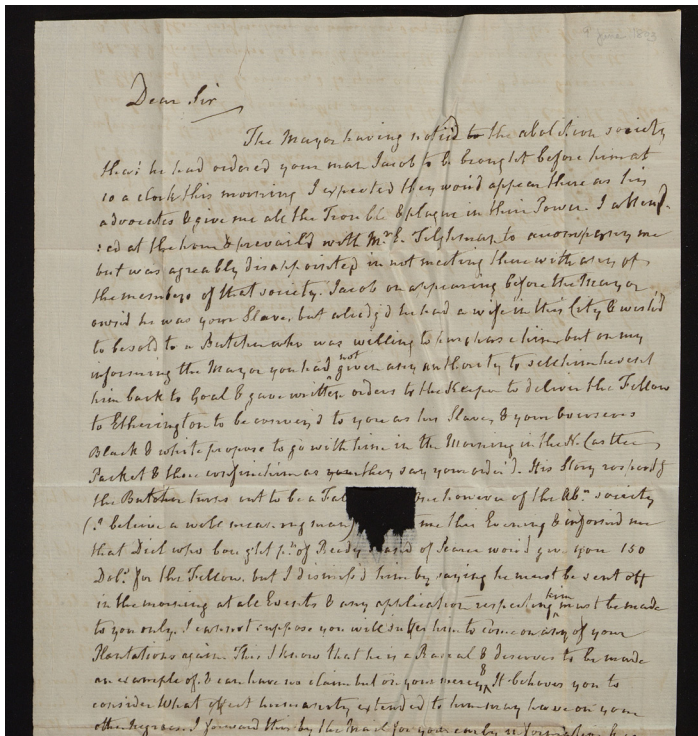 Dear Sir
The Mayor having notic'd to the abolition society
that he had ordered your man Jacob to be brought before him at
10 a clock this morning I expected they would appear there as his
advocates & give me all the Trouble & plague in their Power. I attend-
:ed at the hour & prevaild with Mr. E. Tilghman to accompany me
but was agreably disappointed in not meeting there with any of
the members of that society. Jacob on appearing before the Mayor
own'd he was your Slave, but aledg'd he had a wife in this City & wish'd
to be sold to a Butcher who was willing to purchase him, but on my
informing the Mayor you had not given any authority to sell him he sent
him back to Goal & gave written orders to the Keeper to deliver the Fellow
to Etherington to be convey'd to you as his Slave, & your overseers
Black & white propose to go with him in the Morning in the N. Castle
Packet & there confine him as they say you order'd. His Story respectg
the Butcher turns out to be a Fal One of the Abn. society
(I believe a well meaning man) me this Evening & inform'd me
that Diel who bought pt. of Reedy of Pearce would give you 150
Dolrs. for the Fellow, but I dismiss'd him by saying he must be sent off
in the morning at all Events & any application respecting him must be made
to you only. I cannot suppose you will suffer him to come on any of your
Plantations again. This I know that he is a Rascal & deserves to be made
an example of & can have no claim but on your mercy & It behoves you to
consider What effect humanity extended to him may have on your
other Negroes. I forward this by the Mail for your early information